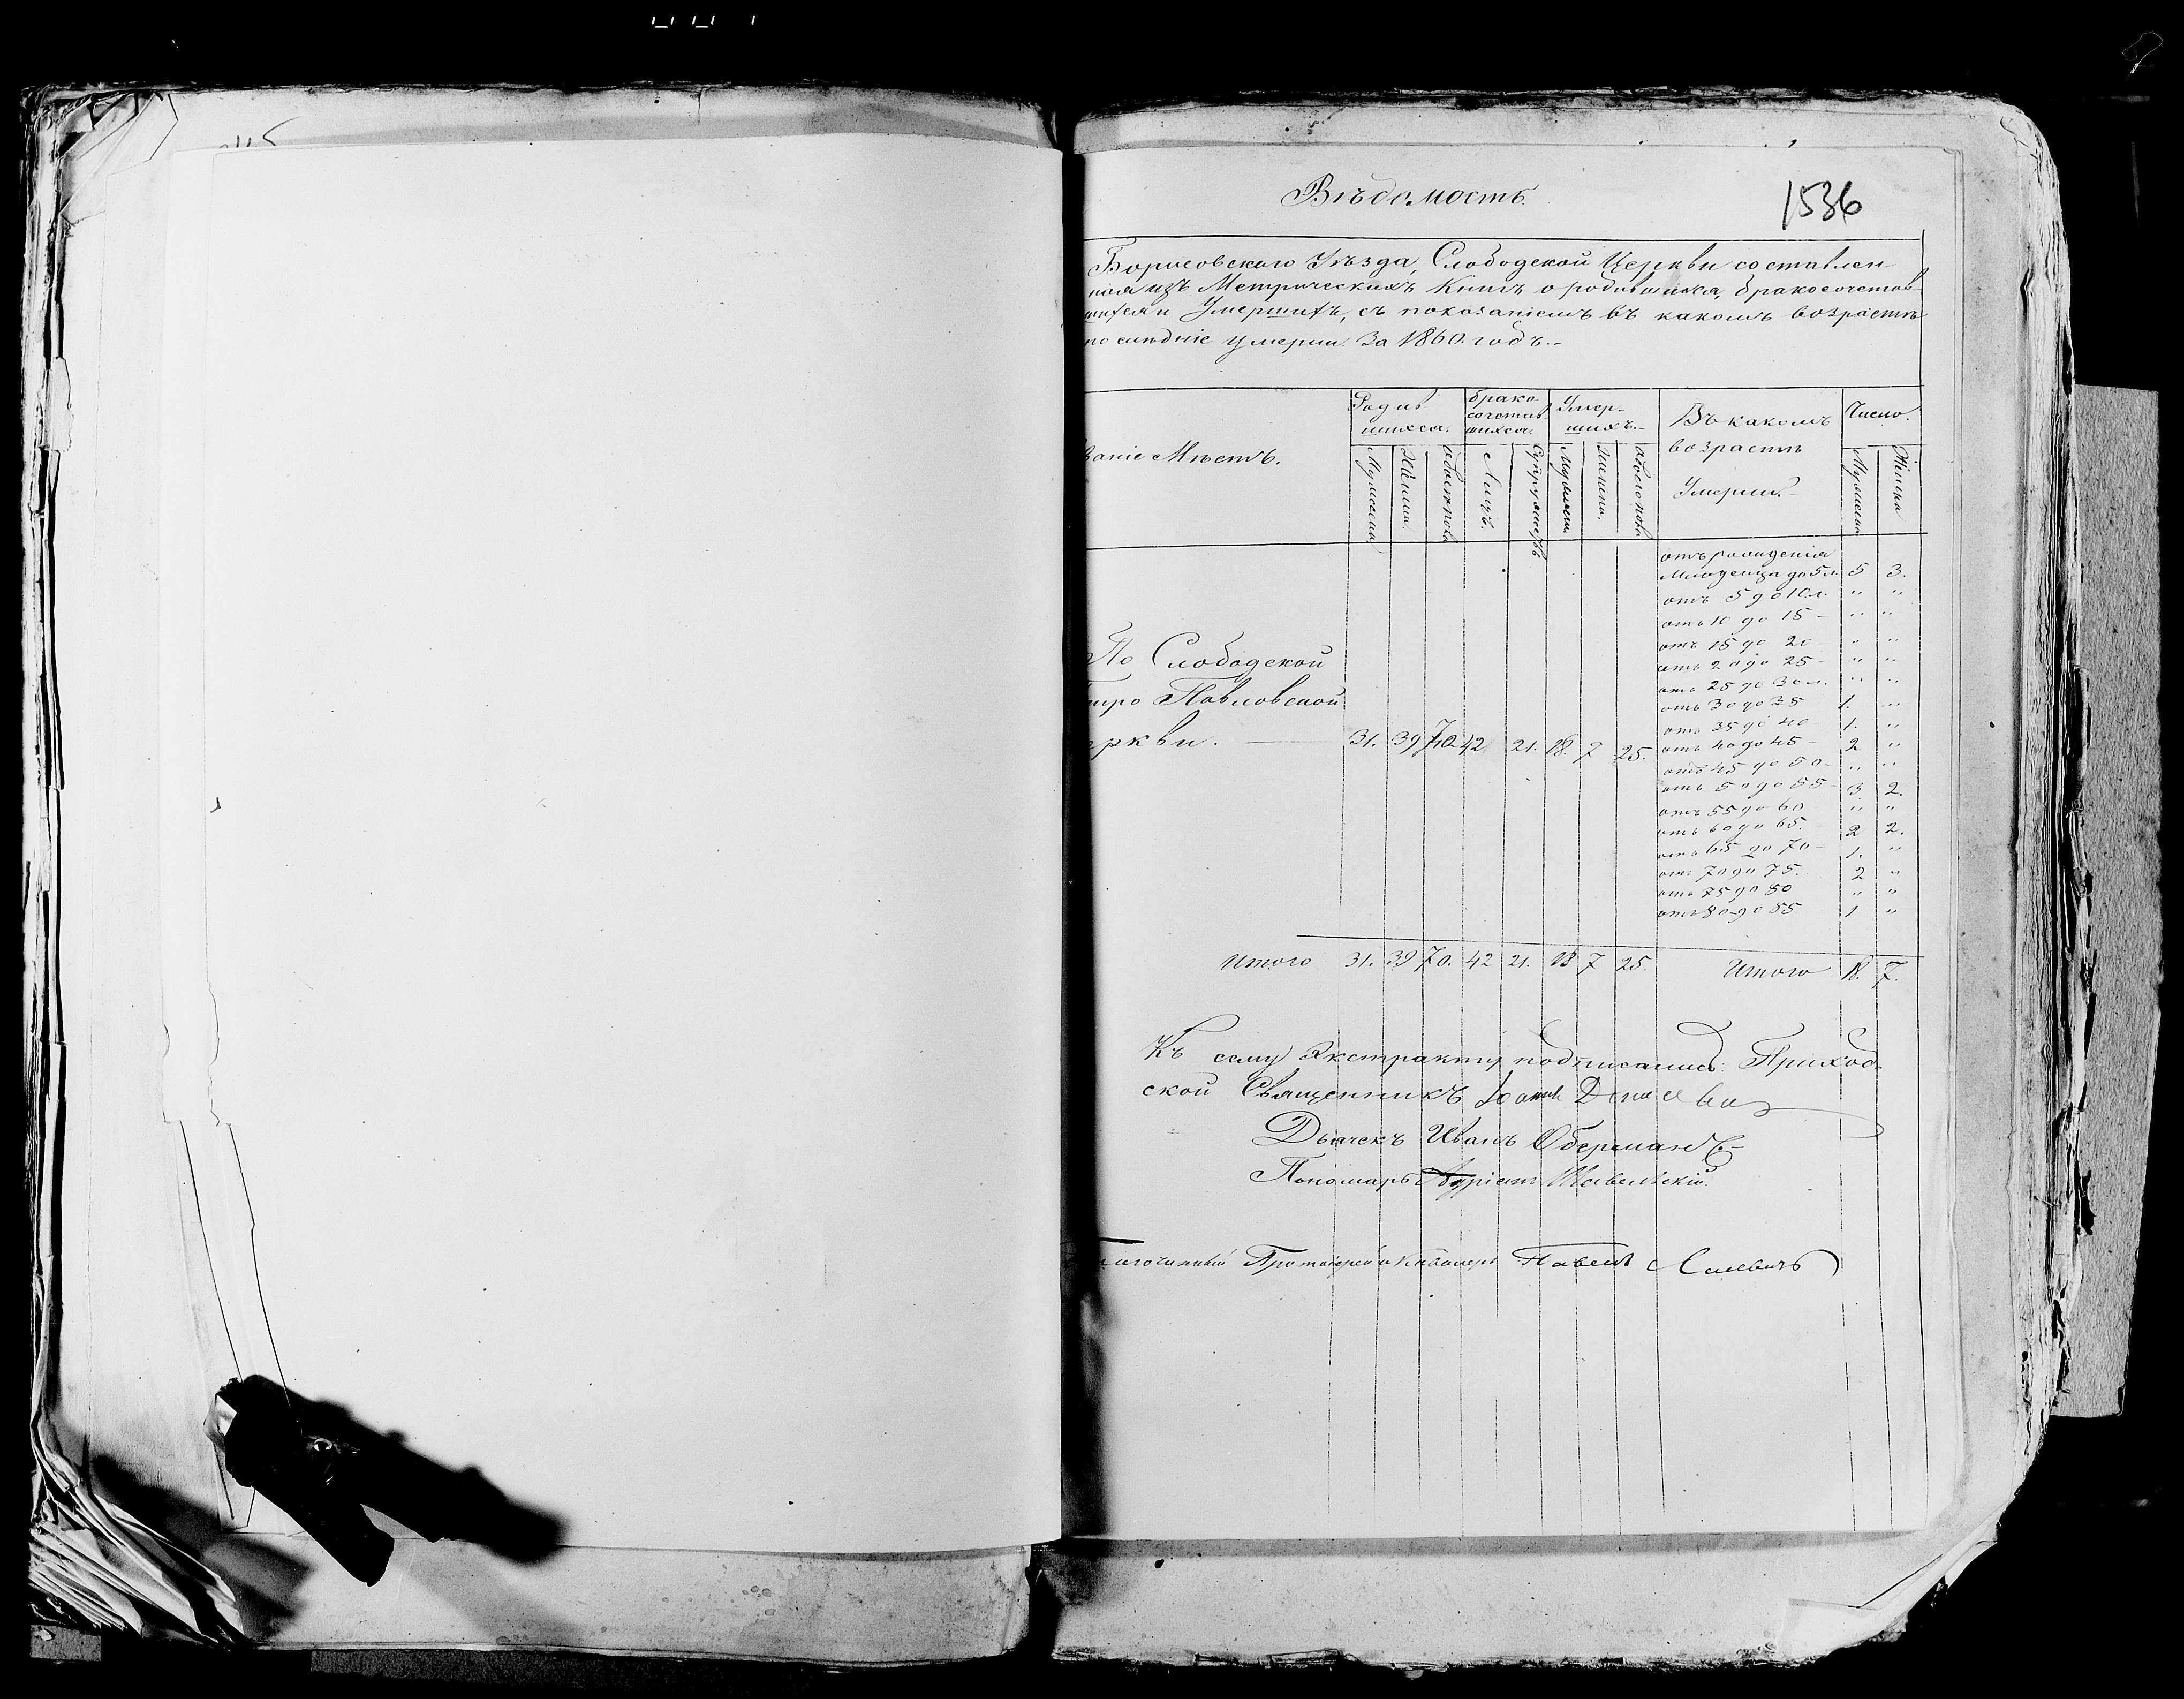 Вѣдомость
1536
Борисовскаго Уѣзда, Слободской Церкви составлен-
ная изъ Метрическихъ Книгъ о родившихся, бракосочетав-
шихся и Умершихъ, съ показаніемъ въ какомъ возрастѣ
послѣдніе умерли. За 1860. годъ.-
Родив- Брако- Умер- Въ какомъ Число.
шихся. сочетав шихъ.-
шихся.
заніе Мѣстъ. возрастѣ
Умерли.-
Мужеска Женска. обоего пола Лицъ. Супружествъ Мужеска Женска. обоего пола Мужеска Женска
отъ рожденія
Младенца до 5 л. 5 3.
отъ 5 до 10 л. " "
отъ 10 до 15 - " "
отъ 15 до 20 " "
По Слободской
отъ 20 до 25 - " "
отъ 25 до 30 л. " "
тро Павловской
отъ 30 до 35 1. "
отъ 35 до 40 1. "
ркви. 31. 39 70. 42 21. 18. 7 25. отъ 40 до 45 - 2 "
отъ 45 до 50 - " "
отъ 50 до 55 - 3 2.
отъ 55 до 60 " "
отъ 60 до 65. 2 2.
отъ 65 до 70 - 1. "
отъ 70 до 75. 2 "
отъ 75 до 80 " "
отъ 80 до 85 1 "
Итого 31. 39 70. 42 21. 18 7 25. Итого 18. 7.
Къ сему Экстракту подписались: Приход-
ской Священникъ Іоаннъ
Дьячекъ Иванъ Оберманъ
Пономарь Шавельскій.
лагочинный Протоіерей и Кавалеръ Павелъ